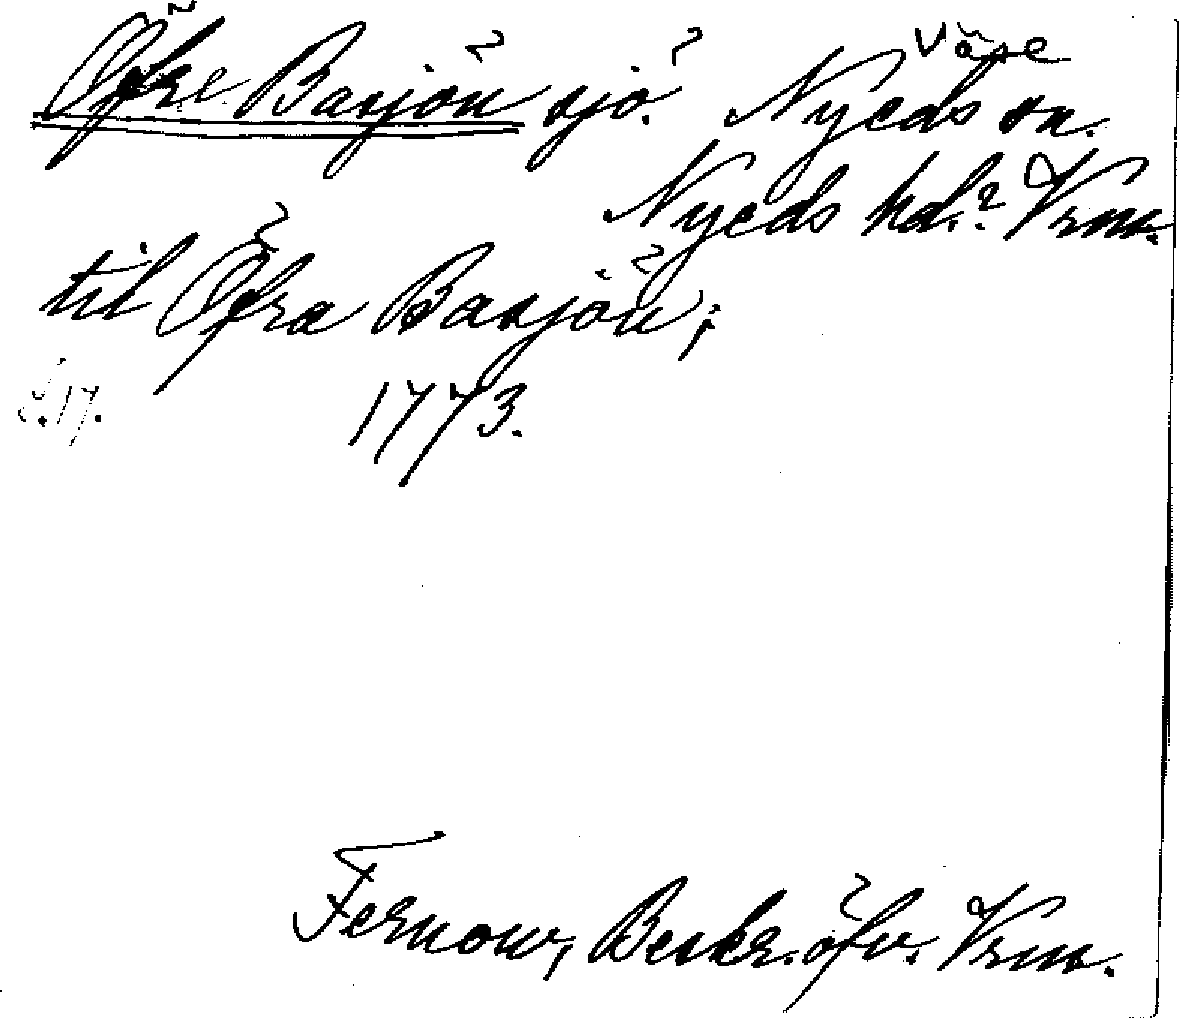 Väse
Öfre Basjön sjö. Nyeds sn.
Nyeds hd.? Vrm.
til Öfra Basjön;
s. 17. 1773.
Fernow, Beskr. öfv. Vrm.